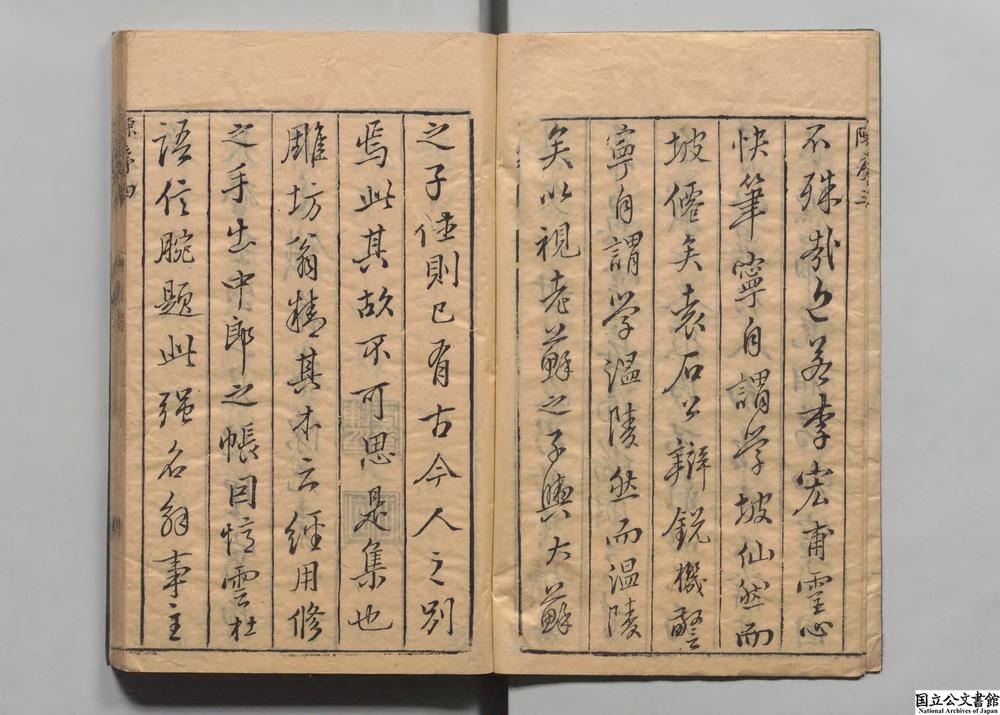 陳序三
不殊哉近若李宏甫靈心
快筆寧自謂学坡仙然而
坡僊矣袁石公辯銳機警
寧自謂学温陵然而温陵
矣以視老蘇之子與大蘇
之子佳則已有古今人之別
焉此其故不可思是集也
雕坊翁精其本云經用修
之手出中郎之帳因憶雲杜
語信腕題此强名解事主
陳序四
国立公文書館
National Archives of Japan